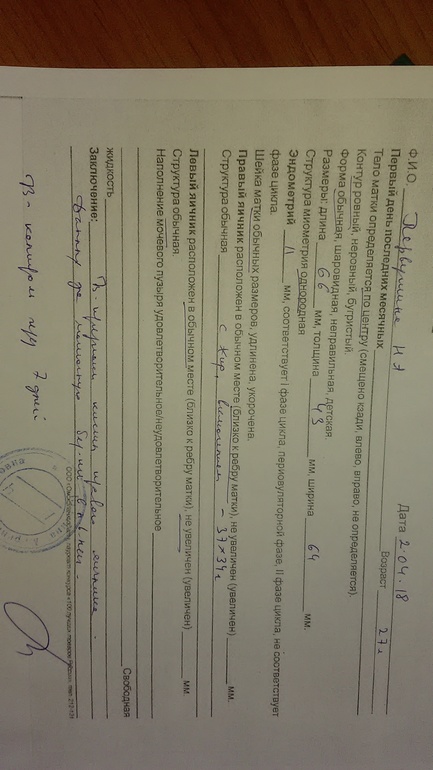 Ф.И.О. Первушина Н.А Дата 2.04.18
Первый день последних месячных Возраст 27л
Тело матки определяется по центру (смещено кзади, влево, вправо, не определяется).
Контур ровный, неровный, бугристый.
Форма обычная, шаровидная, неправильная, детская.
Размеры: длина 66 мм, толщина 43 мм, ширина 64 мм.
Структура миометрия однородная
Эндометрий 11 мм, соответствует I фазе цикла, периовуляторной фазе, II фазе цикла, не соответствует
фазе цикла.
Шейка матки обычных размеров, удлинена, укорочена.
Правый яичник расположен в обычном месте (близко к ребру матки), не увеличен (увеличен) мм.
Структура обычная с жид. включением – 37х34
Левый яичник расположен в обычном месте (близко к ребру матки), не увеличен (увеличен) мм.
Структура обычная
Наполнение мочевого пузыря удовлетворительное/неудовлетворительное
Свободная
жидкость
Заключение: В-признаки кисты правого яичника.
Данных за маточную бер-ть нет.
В-контроль через 7 дней